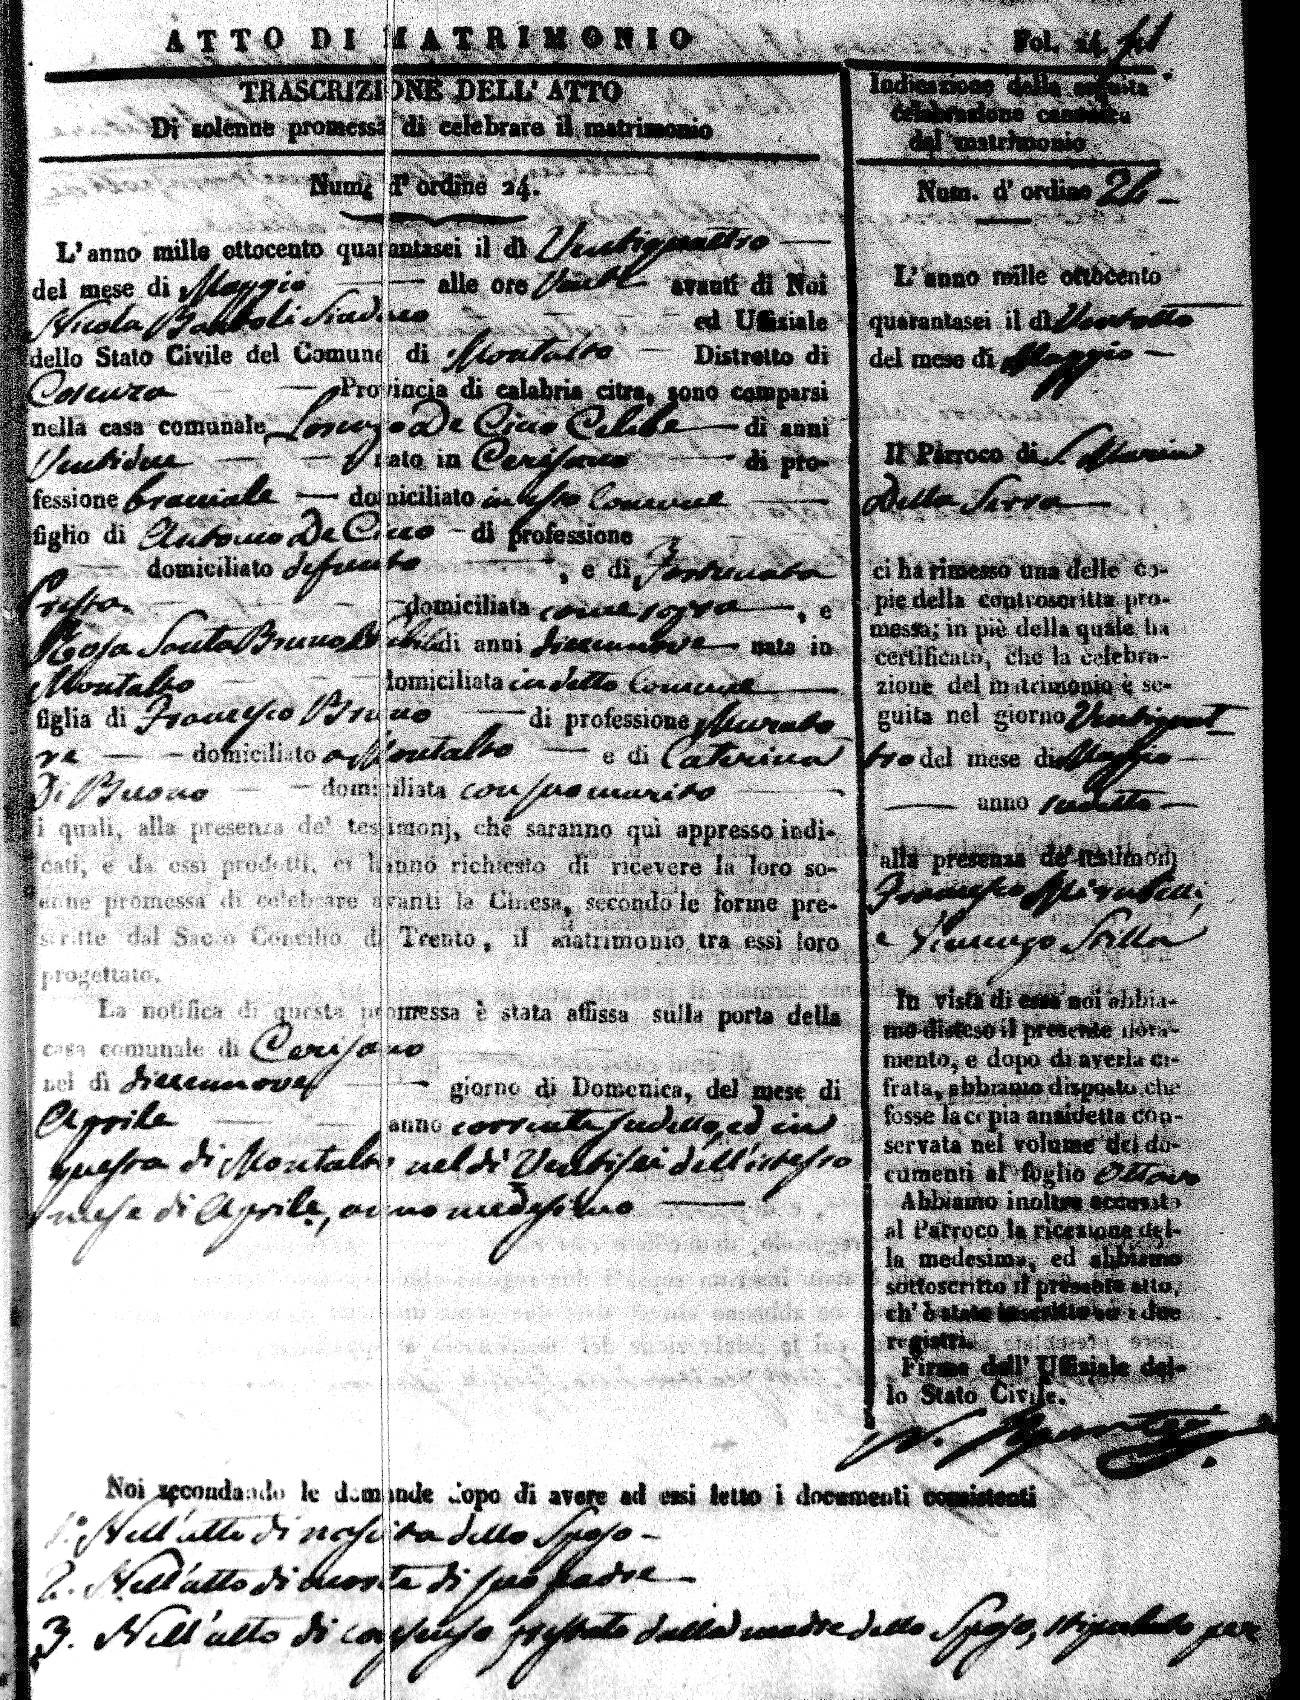 ATTO DI MATRIMONIO
Fol. 24
TRASCRIZIONE DELL' ATTO
Di solenne promessa di celebrare il matrimonio
Num. d' ordine 24.
L' anno mille ottocento quarantasei il dì Ventiquattro
del mese di Maggio alle ore Venti avanti di Noi
Nicola Sindaco ed Uffiziale
dello Stato Civile del Comune di Montalto Distretto di
Cosenza Provincia di calabria citra, sono comparsi
nella casa comunale Lorenzo De Cicco Celibe di anni
Ventidue nato in Cerisano di pro-
fessione bracciale domiciliato in esso Comune
figlio di Antonio De Cicco di professione
domiciliato defunto , e di Fortunata
domiciliata come sopra , e
Rosa Santa Bruno di anni diecinnove nata in
Montalto domiciliata in detto Comune
figlia di Francesco Bruno di professione Murato
re domiciliato a Montalto e di Caterina
Di Buono domiciliata con suo marito
i quali, alla presenza de' testimonj, che saranno qui appresso indi-
cati, e da essi prodotti, ci hanno richiesto di ricevere la loro so-
lenne promessa di celebrare avanti la Chiesa, secondo le forme pre-
scritte dal Sacro Concilio di Trento, il matrimonio tra essi loro
progettato.
La notifica di questa promessa è stata affissa sulla porta della
casa comunale di Cerisano
nel dì diecinnove giorno di Domenica, del mese di
Aprile anno corrente sudetto, ed in
questa di Montalto nel dì Ventisei dell'istesso
mese di Aprile, anno medesimo
Indicazione della seguita
celebrazione canonica
del matrimonio
Num. d' ordine 24
L' anno mille ottocento
quarantasei il dì Ventotto
del mese di Maggio
Il Parroco di S. Maria
Della Serra
ci ha rimesso una delle co-
pie della controscritta pro-
messa; in piè della quale ha
certificato, che la celebra-
zione del matrimonio è se-
guita nel giorno Ventiquat
tro del mese di Maggio
anno sudetto
alla presenza de' testimonj
Francesco
e Vincenzo Stilla
In vista di essa noi abbia-
mo disteso il presente nota-
mento, e dopo di averla ci-
frata, abbiamo disposto che
fosse la copia anzidetta con-
servata nel volume dei do-
cumenti al foglio Ottavo
Abbiamo inoltre accusato
al Parroco la ricezione del-
la medesima, ed abbiamo
sottoscritto il presente atto,
ch' è stato inscritto su i due
registri.
Firma dell' Uffiziale del-
lo Stato Civile.
N.
Noi secondando le domande dopo di avere ad essi letto i documenti consistenti
1.° Nell'atto di nascita dello Sposo
2. Nell'atto di morte di suo padre
3. Nell'atto di consenso prestato dalla madre dello Sposo, stipulato per